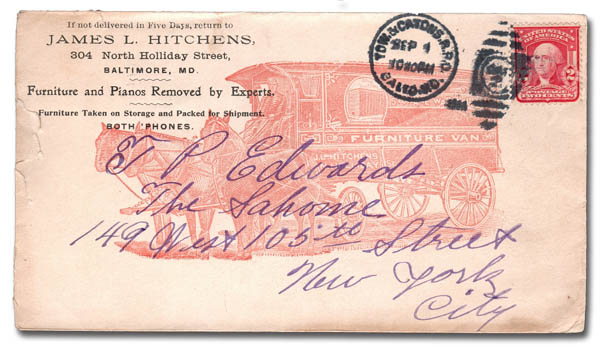 If not delivered in Five Days, return to
JAMES L. HITCHENS,
304 North Holliday Street,
BALTIMORE, MD.
Furniture and Pianos Removed by Experts.
Furniture Taken on Storage and Packed for Shipment.
BOTH PHONES.
TOW. & CATONS. R.P.O.
SEP 4
BALTO. MD.
UNITED STATES
OF AMERICA
2 2
POSTAGE
TWO CENTS
FURNITURE VAN
J.L. HITCHENS
T P Edwards
The Lahome
149 West 105th Street
New York
City